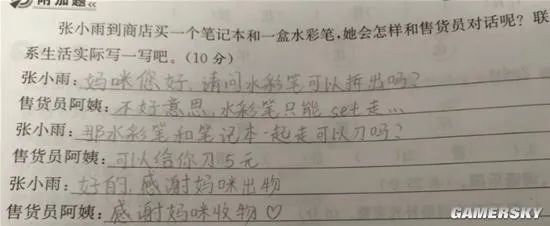 附加题
张小雨到商店买一个笔记本和一盒水彩笔,她会怎样和售货员对话呢?联
系生活实际写一写吧。(10分)
张小雨:妈咪您好,请问水彩笔可以拆出吗?
售货员阿姨:不好意思,水彩笔只能set走...
张小雨:那水彩笔和笔记本一起走可以刀吗?
售货员阿姨:可以给你刀5元
张小雨:好的,感谢妈咪出物
售货员阿姨:感谢妈咪收物♡
GAMERSKY